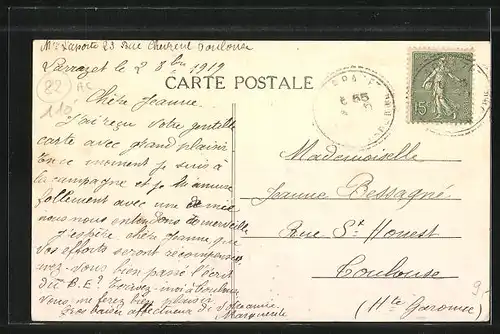 Mme Laporte 23 Rue Toulouse
Parrazet le 2 8bre 1919
CARTE POSTALE
22 AC
110
Chère Jeanne.
J'ai reçu votre gentille
carte avec grand plaisir
En ce moment je suis à
la campagne et je m'amuse
follement avec une amie
nous nous entendons à merveille
J'espère chère Jeanne que
vos efforts seront récompensés
Avez-vous bien passé l'écrit
du B.E? Ecrivez-moi à Toulouse
Vous me ferez bien plaisir
Tres baiser affectueux de
Marguerite
15
Mademoiselle
Jeanne Bessagné
Rue St Honest
Toulouse
(Hte Garonne)
9.-